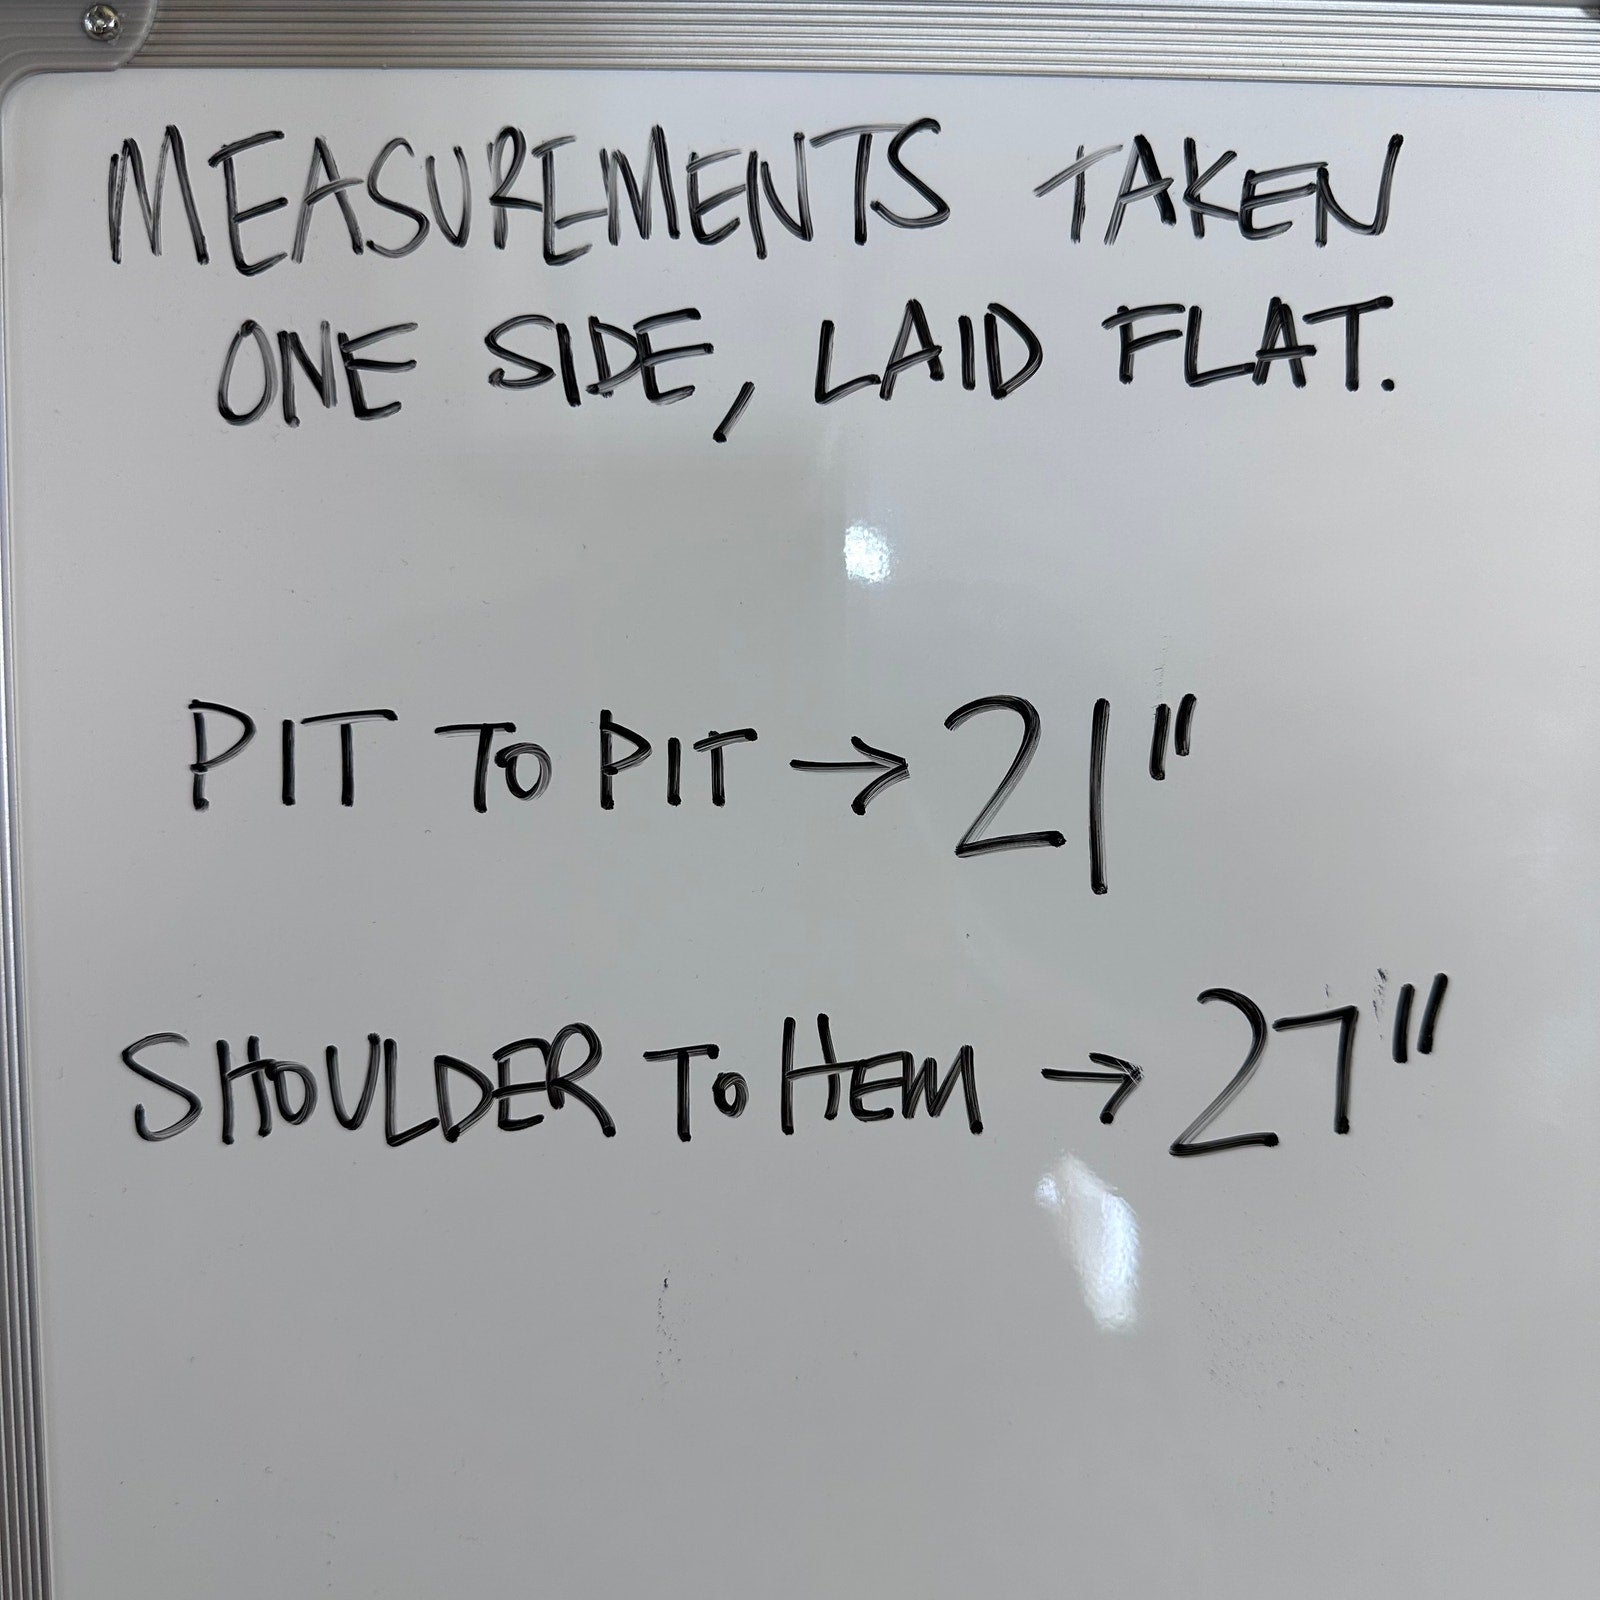 MEASUREMENTS TAKEN
ONE SIDE, LAID FLAT.
PIT TO PIT → 21"
SHOULDER TO HEM → 27"